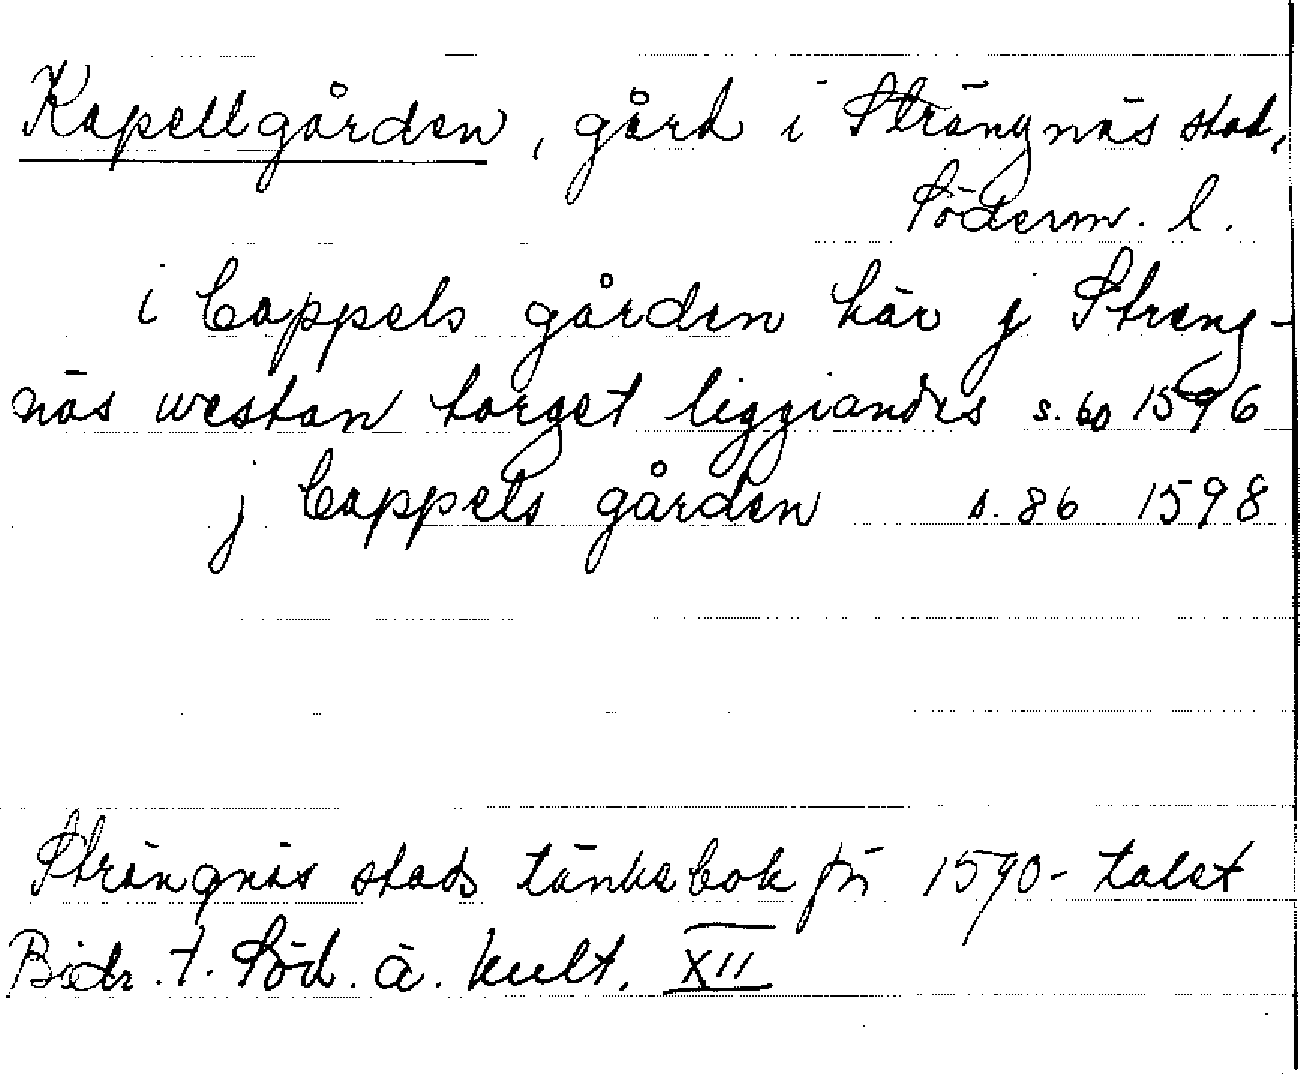 Kapellgården, gård i Strängnäs stad,
Söderm. l.
i Cappels gården här j Streng-
näs westan torget liggiandes s. 60 1596
j Cappels gården s. 86 1598
Strängnäs stads tänkebok fr 1590-talet
Bidr. t. Söd. ä. kult. XII